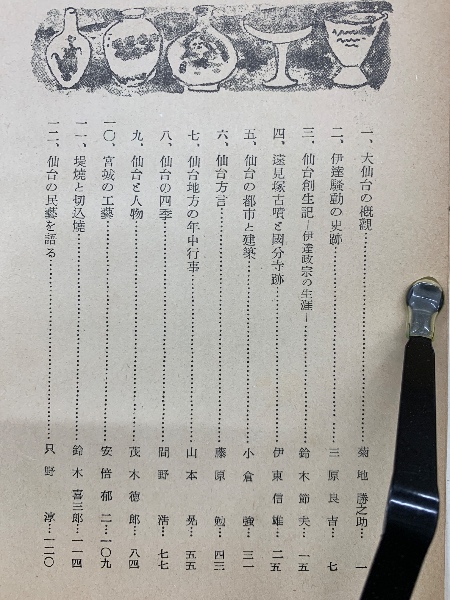 一、大仙台の槪觀……菊地勝之助…一
二、伊達騷動の史跡……三原良吉…七
三、仙台創生記―伊達政宗の生涯―……鈴木節夫…一五
四、遠見塚古墳と國分寺跡……伊東信雄…二五
五、仙台の都市と建築……小倉強…三一
六、仙台方言……藤原勉…四三
七、仙台地方の年中行事……山本晃…五五
八、仙台の四季……間野浩…七七
九、仙台と人物……茂木德郎…八四
一〇、宮城の工藝……安倍郁二…一〇九
一一、堤燒と切込燒……鈴木喜三郎…一一四
一二、仙台の民藝を語る……只野淳…一二〇